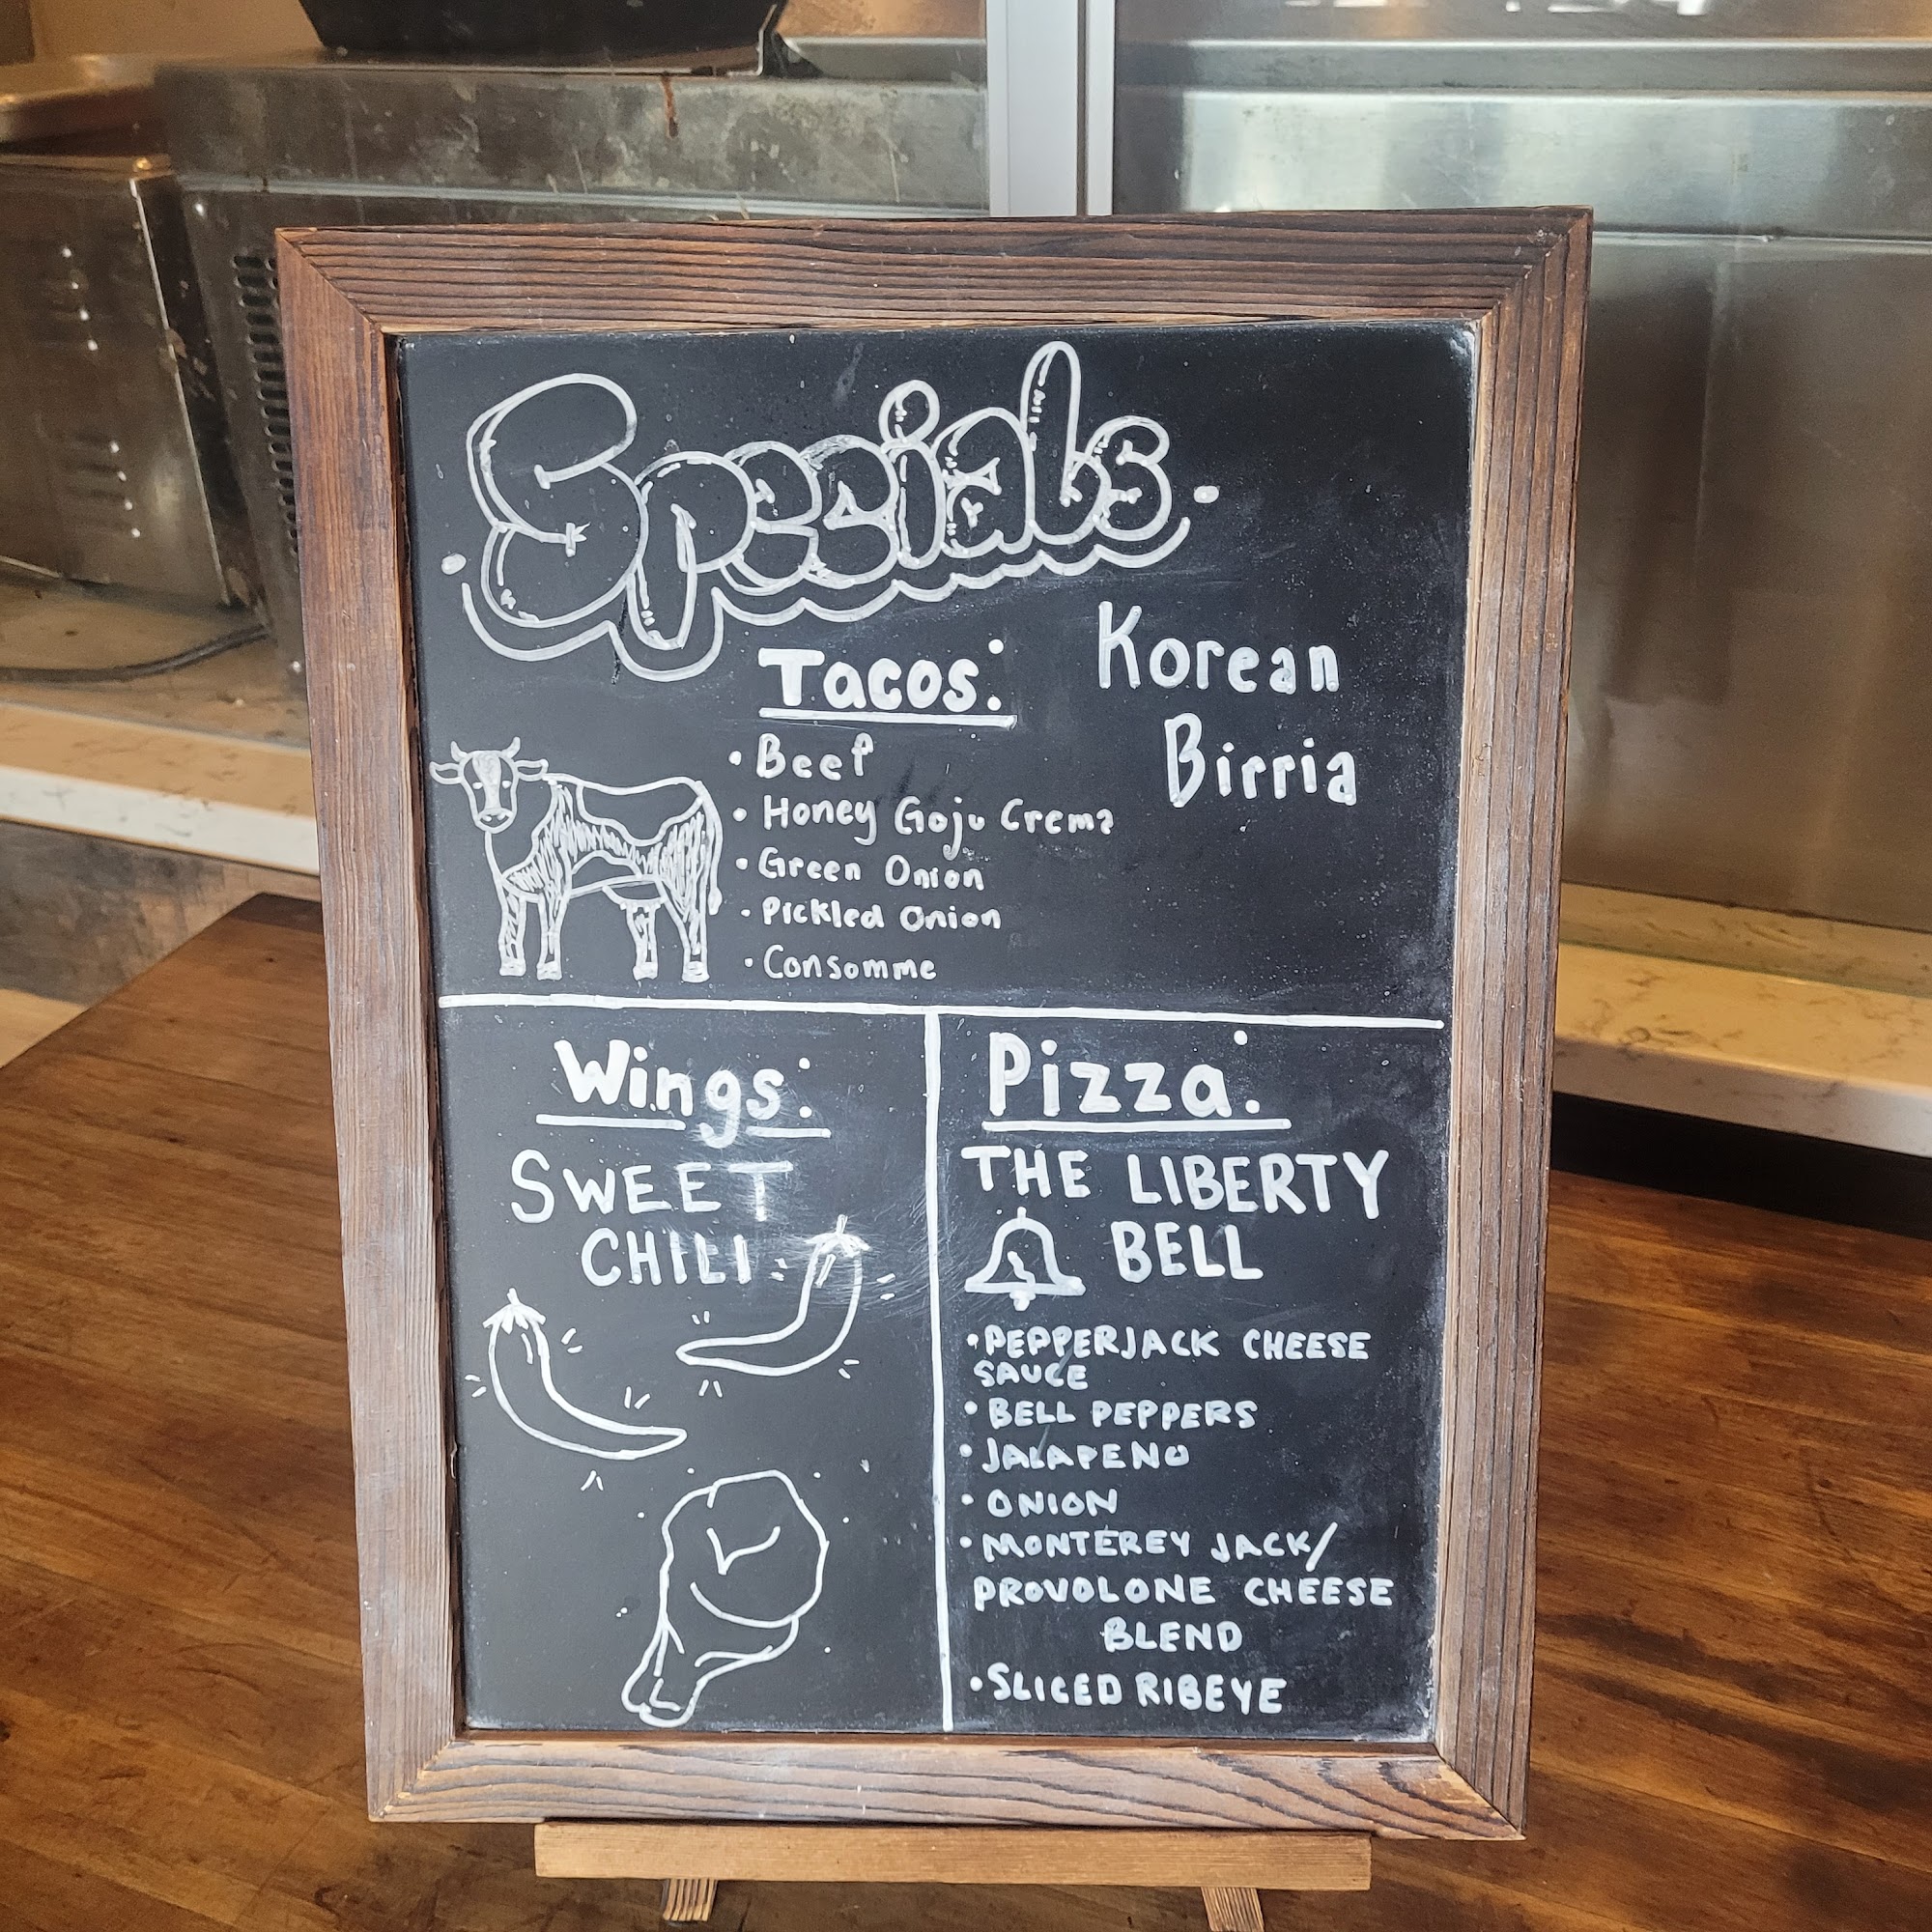 Specials
Tacos:
Korean
Birria
• Beef
• Honey Goju Crema
• Green Onion
• Pickled Onion
• Consomme
Wings:
SWEET
CHILI
Pizza:
THE LIBERTY
BELL
• PEPPERJACK CHEESE
SAUCE
• BELL PEPPERS
• JALAPENO
• ONION
• MONTEREY JACK/
PROVOLONE CHEESE
BLEND
• SLICED RIBEYE